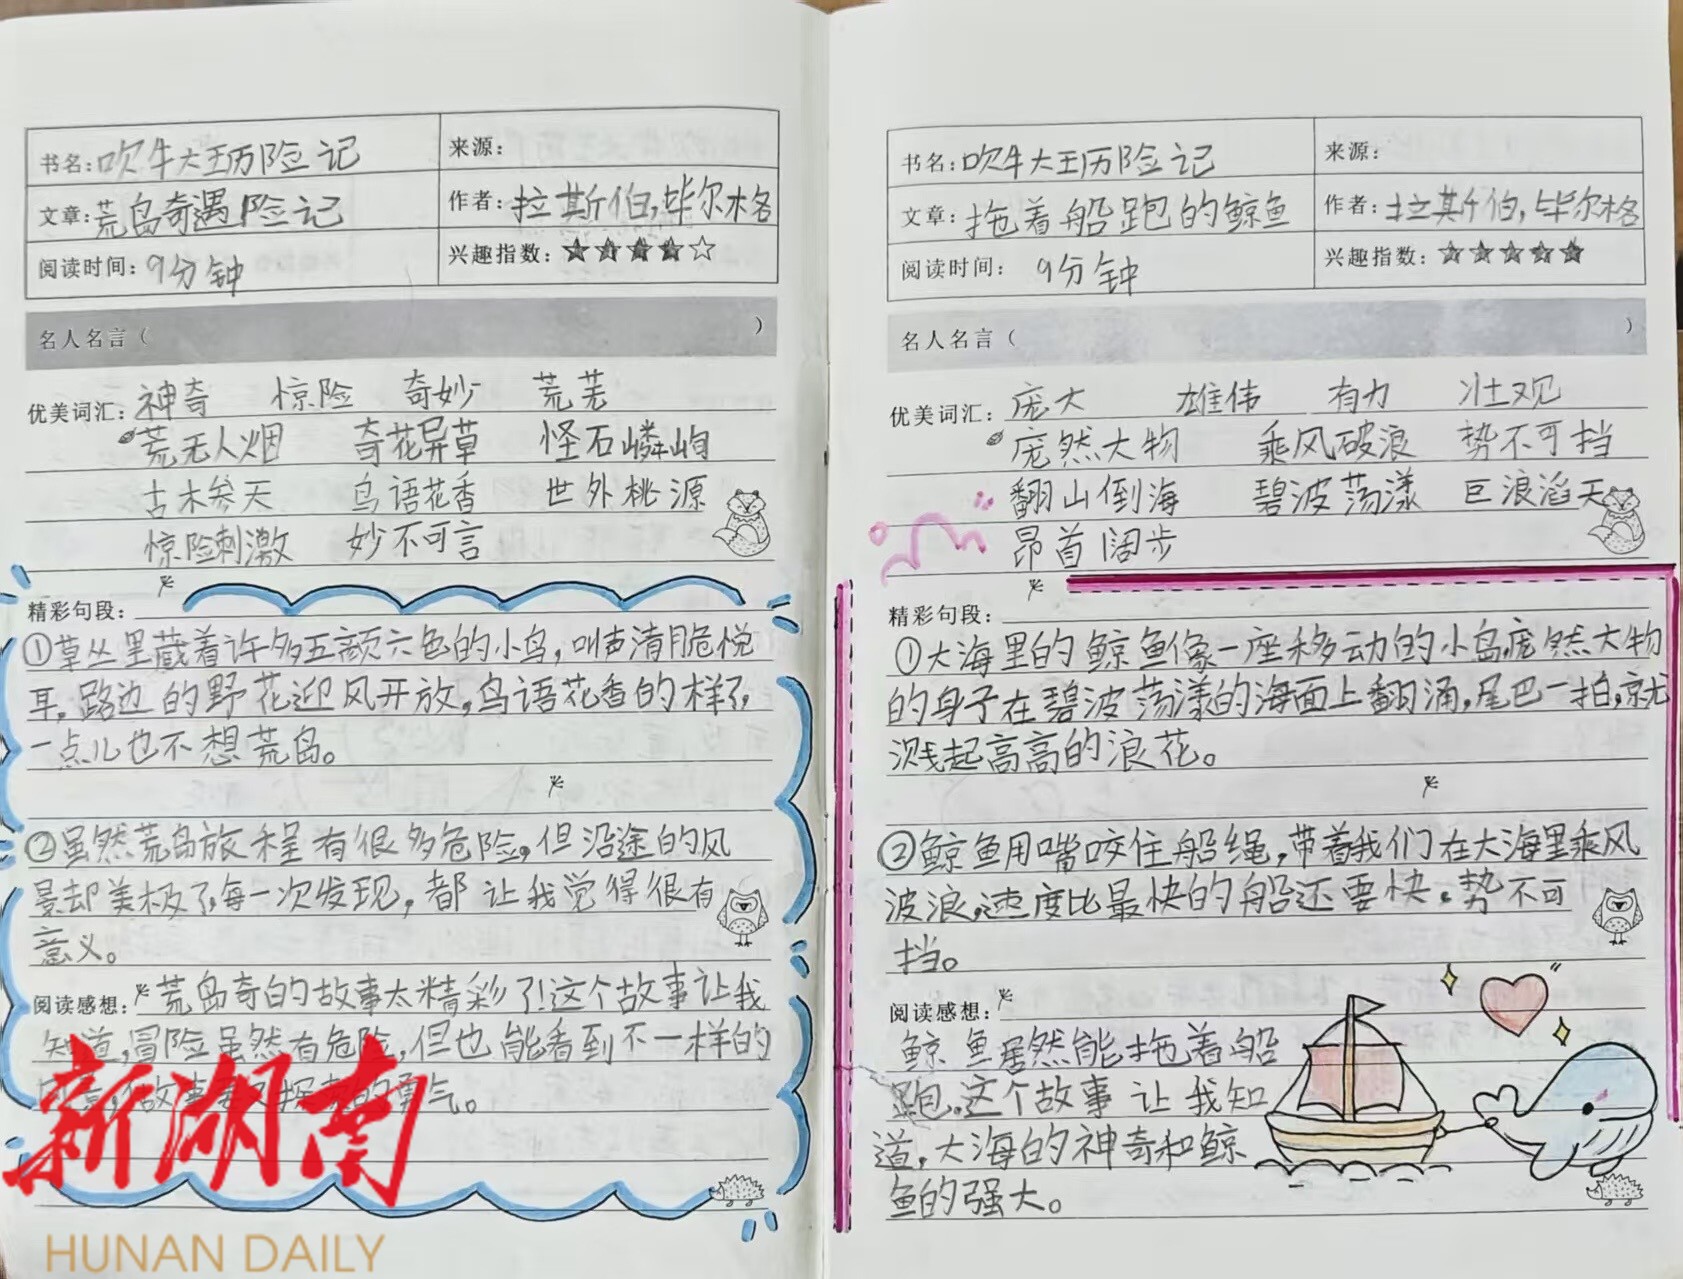 书名:吹牛大王历险记
来源:
文章:荒岛奇遇险记
作者:拉斯伯,毕尔格
阅读时间:9分钟
兴趣指数:★★★★☆
名人名言( )
优美词汇:神奇 惊险 奇妙 荒芜
荒无人烟 奇花异草 怪石嶙峋
古木参天 鸟语花香 世外桃源
惊险刺激 妙不可言
精彩句段:
①草丛里藏着许多五颜六色的小鸟,叫声清脆悦
耳,路边的野花迎风开放,鸟语花香的样子,
一点儿也不想荒岛。
②虽然荒岛旅程有很多危险,但沿途的风
景却美极了,每一次发现,都让我觉得很有
意义。
阅读感想:荒岛奇的故事太精彩了!这个故事让我
知道,冒险虽然有危险,但也能看到不一样的
勇气。
新湖南
HUNAN DAILY
书名:吹牛大王历险记
来源:
文章:拖着船跑的鲸鱼
作者:拉斯伯,毕尔格
阅读时间: 9分钟
兴趣指数:★★★★★
名人名言( )
优美词汇:庞大 雄伟 有力 壮观
庞然大物 乘风破浪 势不可挡
翻山倒海 碧波荡漾 巨浪滔天
昂首阔步
精彩句段:
①大海里的鲸鱼像一座移动的小岛,庞然大物
的身子在碧波荡漾的海面上翻涌,尾巴一拍,就
溅起高高的浪花。
②鲸鱼用嘴咬住船绳,带着我们在大海里乘风
波浪,速度比最快的船还要快,势不可
挡。
阅读感想:
鲸鱼居然能拖着船
跑,这个故事让我知
道,大海的神奇和鲸
鱼的强大。